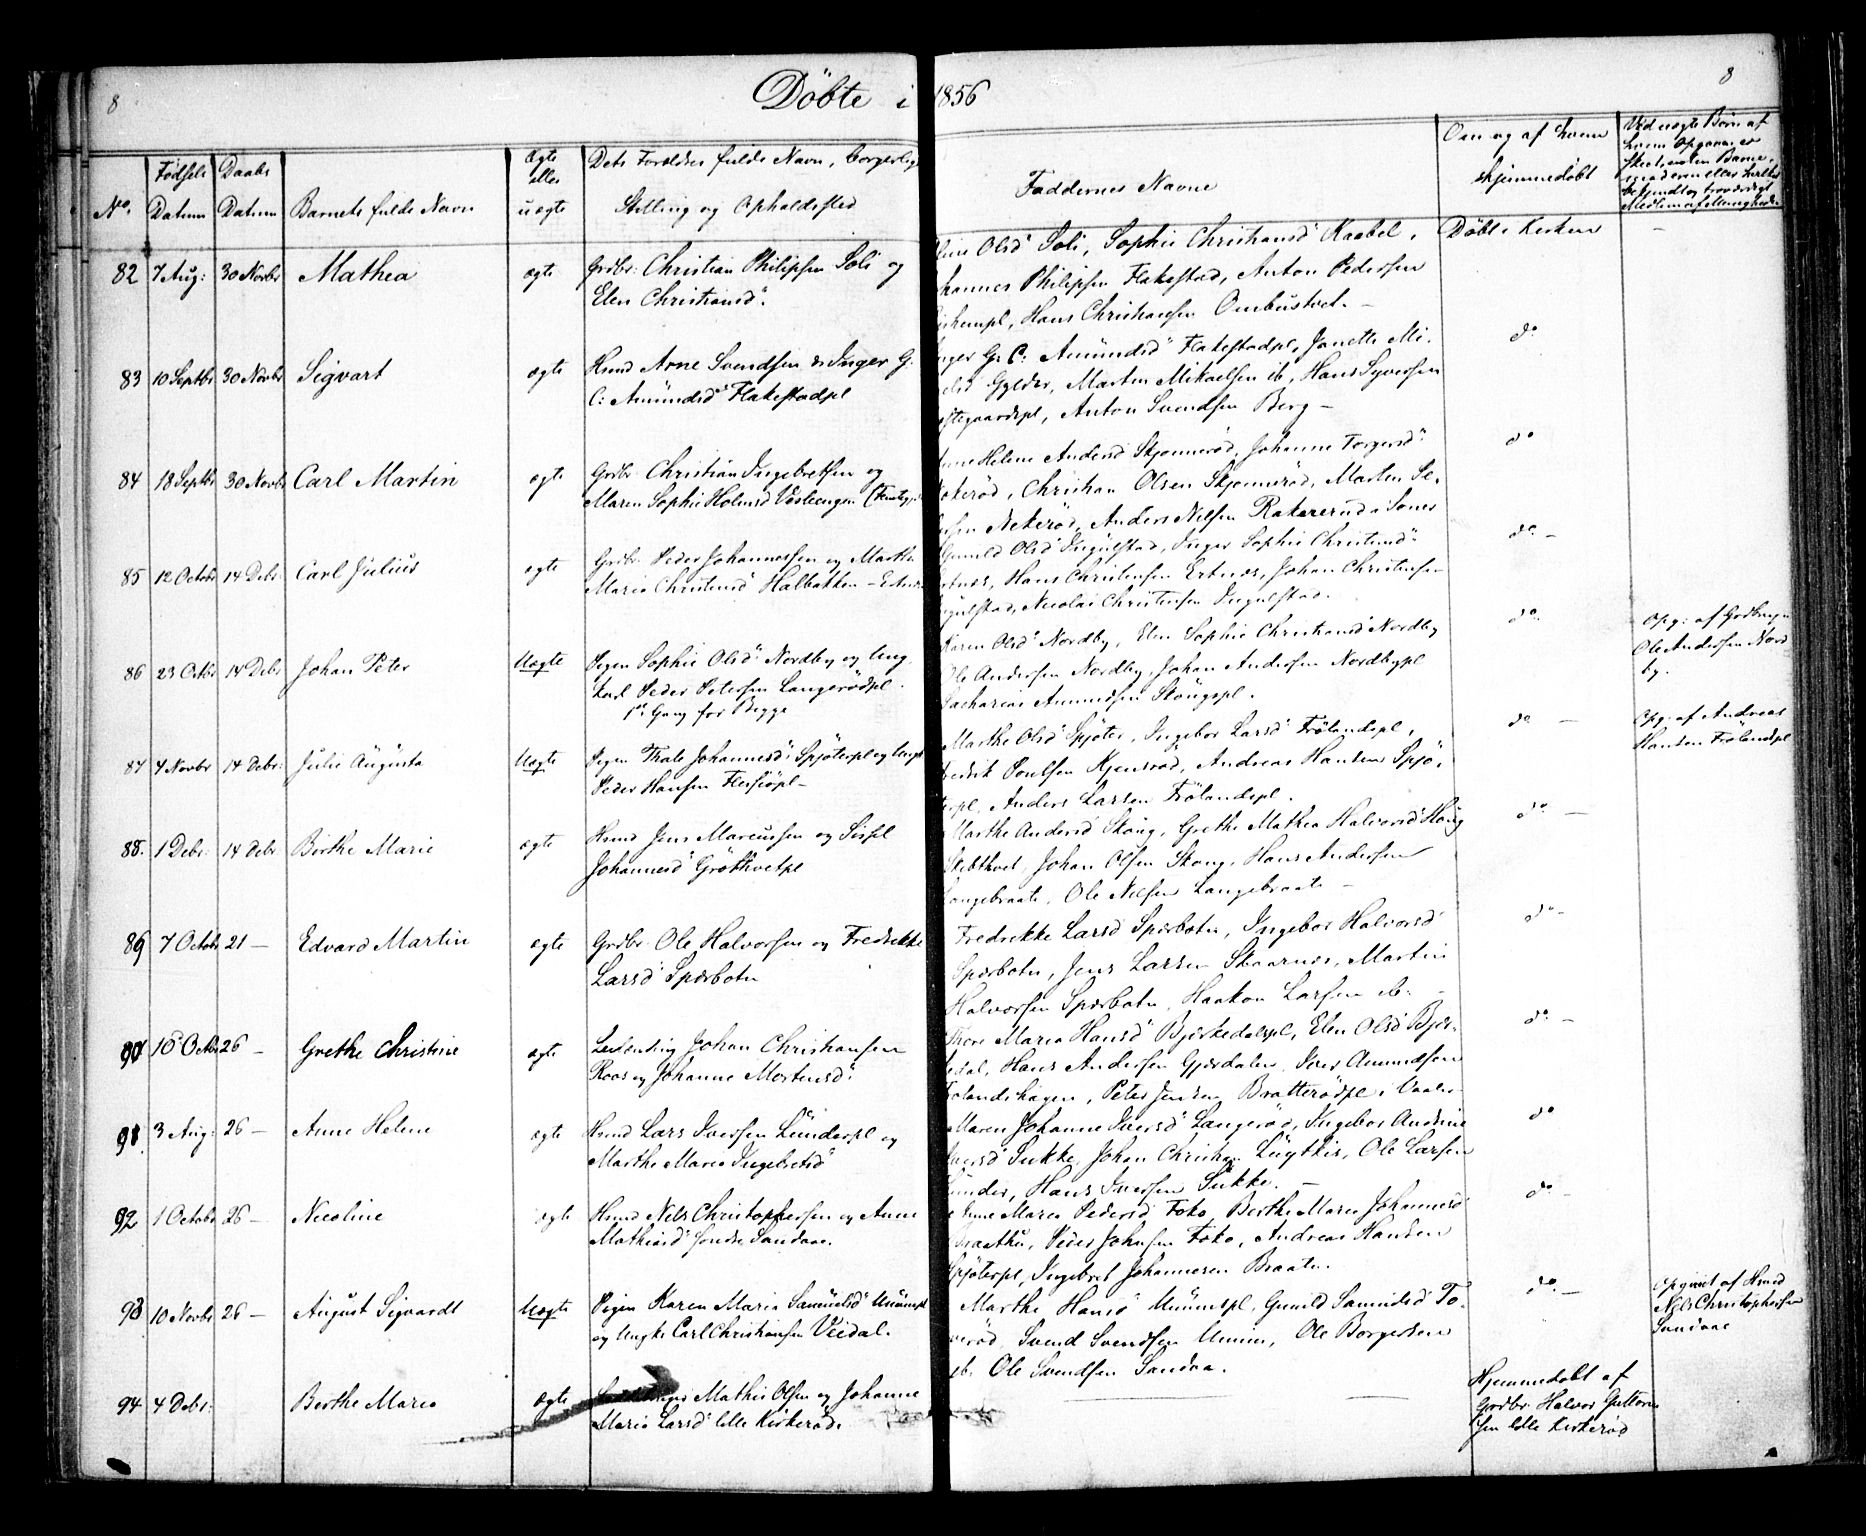 8
Döbte i 1856
8
No.
Födsels Datum
Daabs Datum
Barnets fulde Navn
Ægte eller uægte
Dets Forældres fulde Navn, borgerlig
Stilling og Opholdssted
Faddernes Navne
Om og af hvem
hjemmedöbt
Ved uægte Börn af
hvem Opgaven er
82 7 Aug: 30 Novbr Mathea ægte Grdbr: Christian Philipsen Soli og
Elen Christiansd.
Olsd Soli, Sophie Christiansd Kaabel,
Philipsen Flakestad, Anton Pedersen
Hans Christiansen Ombustvet. –
Döbt i Kirken
83 10 Septbr 30 Novbr Sigvart ægte Hsmd Arne Svendsen & Inger G.
C: Amündsd Flakestadpl
G: C: Amündsd Flakestadpl, Janette Mi-
Gylder, Marten Mikaelsen ib, Hans Syversen
Anton Svendsen Berg –
do
84 18 Septbr 30 Novbr Carl Martin ægte Grdbr: Christian Ingebretsen og
Maren Sophie Holmsd Vesteengen
Helene Andersd Skjönneröd, Johanne Torgersd
Christian Olsen Skjönneröd, Marten Se-
Nekeröd, Anders Nilsen Rakererud i Soner
do
85 12 Octobr 14 Debr: Carl Julius ægte Grdbr: Peder Johannessen og Marthe
Maria Christensd Halbakken – Ertnes
Gunild Olsd Ingulstad, Inger Sophie Christensd
Hans Christensen Ertnes, Johan Christensen
Nicolai Christensen Ingulstad.
do –
86 23 Octbr 14 Debr Johan Peter Uægte Pigen Sophie Olsd Nordby og Ung-
karl Peder Petersen Langerödpl.
1ste Gang for Begge
Karen Olsd Nordby, Elen Sophie Christiansd Nordby
Ole Andersen Nordby, Johan Andersen Nordbypl
Zacharias Amundsen Skougspl.
do
Opg: af Grdbruger
Ole Andersen Nord
by.
87 4 Novbr 14 Debr: Julie Augusta Uægte Pigen Thale Johannesd Spjöterpl og Ungk
Peder Hansen Flesjöpl –
Marthe Olsd Spjöter, Ingebor Larsd Frölandspl,
Fredrik Poulsen Kjensröd, Andreas Hansen Spjö-
terpl, Anders Larsen Frölandspl.
do –
Opg: af Andreas
Hansen Frölandspl
88. 1 Debr: 14 Debr Birthe Marie ægte Hsmd Jens Marcussen og Sissel
Johannesd Gröthvetpl
Marthe Andersd Skoug, Grethe Mathea Halvorsd Houg
Skibthvet, Johan Olsen Skoug, Hans Andersen
Langebraate, Ole Nilsen Langebraate –
do –
89 7 Octobr 21 – Edvard Martin ægte Grdbr: Ole Halvorsen og Fredrikke
Larsd Sperboten
Fredrikke Larsd Sperboten, Ingebor Halvorsd
Sperboten, Jens Larsen Skaarnes, Martin
Halvorsen Sperboten, Haakon Larsen ib.
do –
90 10 Octbr 26 – Grethe Christine ægte Johan Christiansen
Roos og Johanne Mortensd.
Thore Maria Hansd Bjerkedalspl, Elen Olsd Bjer-
kedal, Hans Andersen Gjerdalen, Iver Amundsen
Frölandshagen, Peter Jensen Bratterödpl i Vaaler
do –
91 3 Aug: 26 – Anne Helene ægte Hsmd Lars Iversen Lunderpl og
Marthe Maria Ingebretsd
Maren Johanne Iversd Langeröd, Ingebor Andrine
Iversd Sukke, Johan Christian Lügtkis, Ole Larsen
Lunder, Hans Iversen Sukke. –
do
92 1 Octobr 26 – Nicoline ægte Hsmd Nels Christophersen og Anne
Mathiasd söndre Sandaae.
Anne Maria Pedersd Foko, Berthe Maria Johannesd
Braathu, Peder Johnsen Foko, Andreas Hansen
Spjöterpl, Ingebret Johannesen Braaten.
do –
93 10 Novbr 26 – August Sigvardt Uægte Pigen Karen Maria Samuelsd Unünnspl
og Ungk: Carl Christiansen Veidal.
Marthe Hansd Munnespl, Gunild Samuelsd To-
veröd, Svend Svendsen Unum, Ole Borgersen
ib. Ole Svendsen Sandaa.
do –
Opgivet af Hsmd
Nels Christophersen
Sandaae
94 4 Debr: Berthe Maria Ægte Mathis Olsen og Johanne
Maria Larsd lille Kirkeröd.
Hjemmedöbt af
Grdbr: Halvor Guttorm
sen lille Kirkeröd